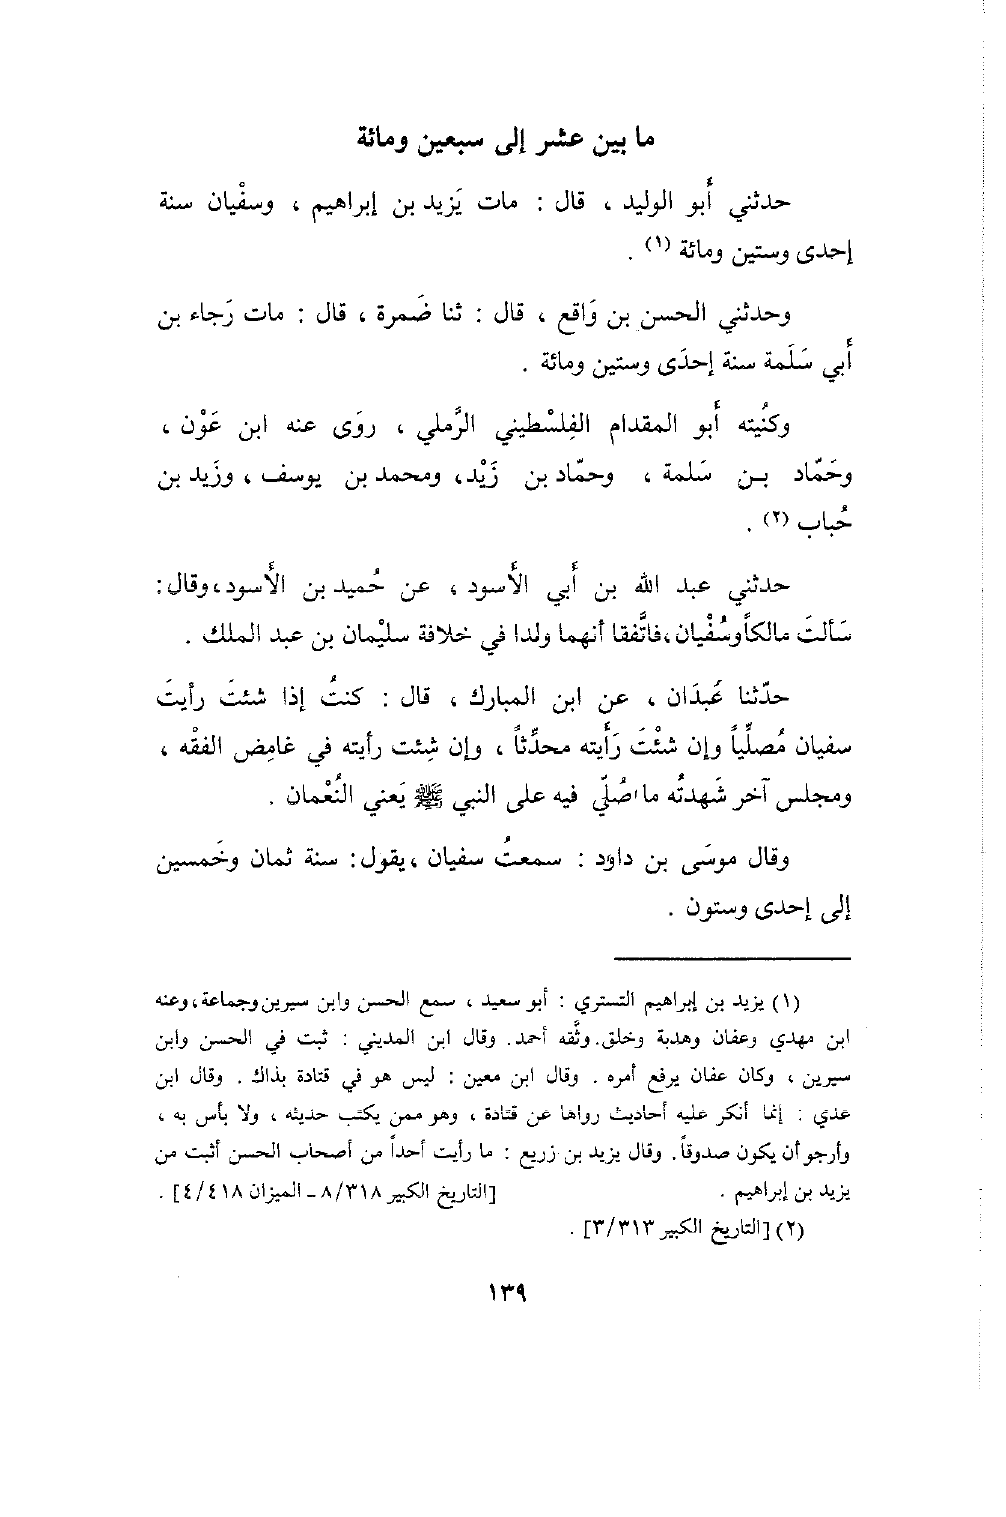 ما بين عشر إلى سبعين ومائة
حدثني أَبو الوليد ، قال : مات يَزيد بن إبراهيم ، وسفْيان سنة
إحدى وستين ومائة (١) .
وحدثني الحسن بن وَاقع ، قال : ثنا ضَمرة ، قال : مات رَجاء بن
أَبي سَلَمة سنة إحدَى وستين ومائة .
وكنُيته أَبو المقدام الفِلسْطيني الرَّملي ، روَى عنه ابن عَوْن ،
وحَمّاد بـن سَلمة ، وحمّاد بن زَيْد، ومحمد بن يوسف ، وزَيد بن
حُباب (٢) .
حدثني عبد الله بن أَبي الأَسود ، عن حُميد بن الأَسود، وقال :
سَألتَ مالكاً وسُفْيان، فاتَّفقا أنهما ولدا في خلافة سليْمان بن عبد الملك .
حدّثنا عَبدَان ، عن ابن المبارك ، قال : كنتُ إذا شئتَ رأيتَ
سفيان مُصلِّياً وإن شئْتَ رَأَيته محدِّثاً ، وإن شِئت رأيته في غامِض الفقْه ،
ومجلس آخر شَهدتُه ما صُلّي فيه على النبي ﷺ يَعني النُعْمان .
وقال موسَى بن داود : سمعتُ سفيان ، يقول : سنة ثمان وخَمسين
إلى إحدى وستون .
(١) يزيد بن إبراهيم التستري : أبو سعيد ، سمع الحسن وابن سيرين وجماعة، وعنه
ابن مهدي وعفان وهدبة وخلق. وثَّقه أحمد. وقال ابن المديني : ثبت في الحسن وابن
سيرين ، وكان عفان يرفع أمره . وقال ابن معين : ليس هو في قتادة بذاك . وقال ابن
عدي : إنما أنكر عليه أحاديث رواها عن قتادة ، وهو ممن يكتب حديثه ، ولا بأس به ،
وأرجو أن يكون صدوقاً. وقال يزيد بن زريع : ما رأيت أحداً من أصحاب الحسن أثبت من
يزيد بن إبراهيم . [التاريخ الكبير ٨/٣١٨ ـ الميزان ٤/٤١٨] .
(٢) [التاريخ الكبير ٣/٣١٣] .
١٣٩